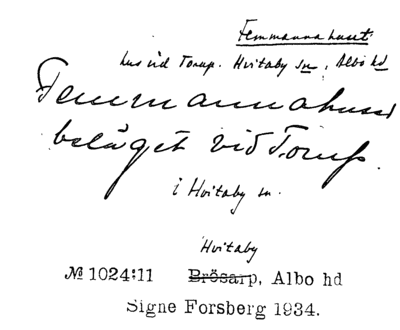 Femmannahuset
hus vid Torup. Hvitaby sn, Albo hd
Femmannahuset
beläget vid Torup.
i Hvitaby sn.
Hvitaby
№ 1024:11 Brösarp, Albo hd
Signe Forsberg 1934.